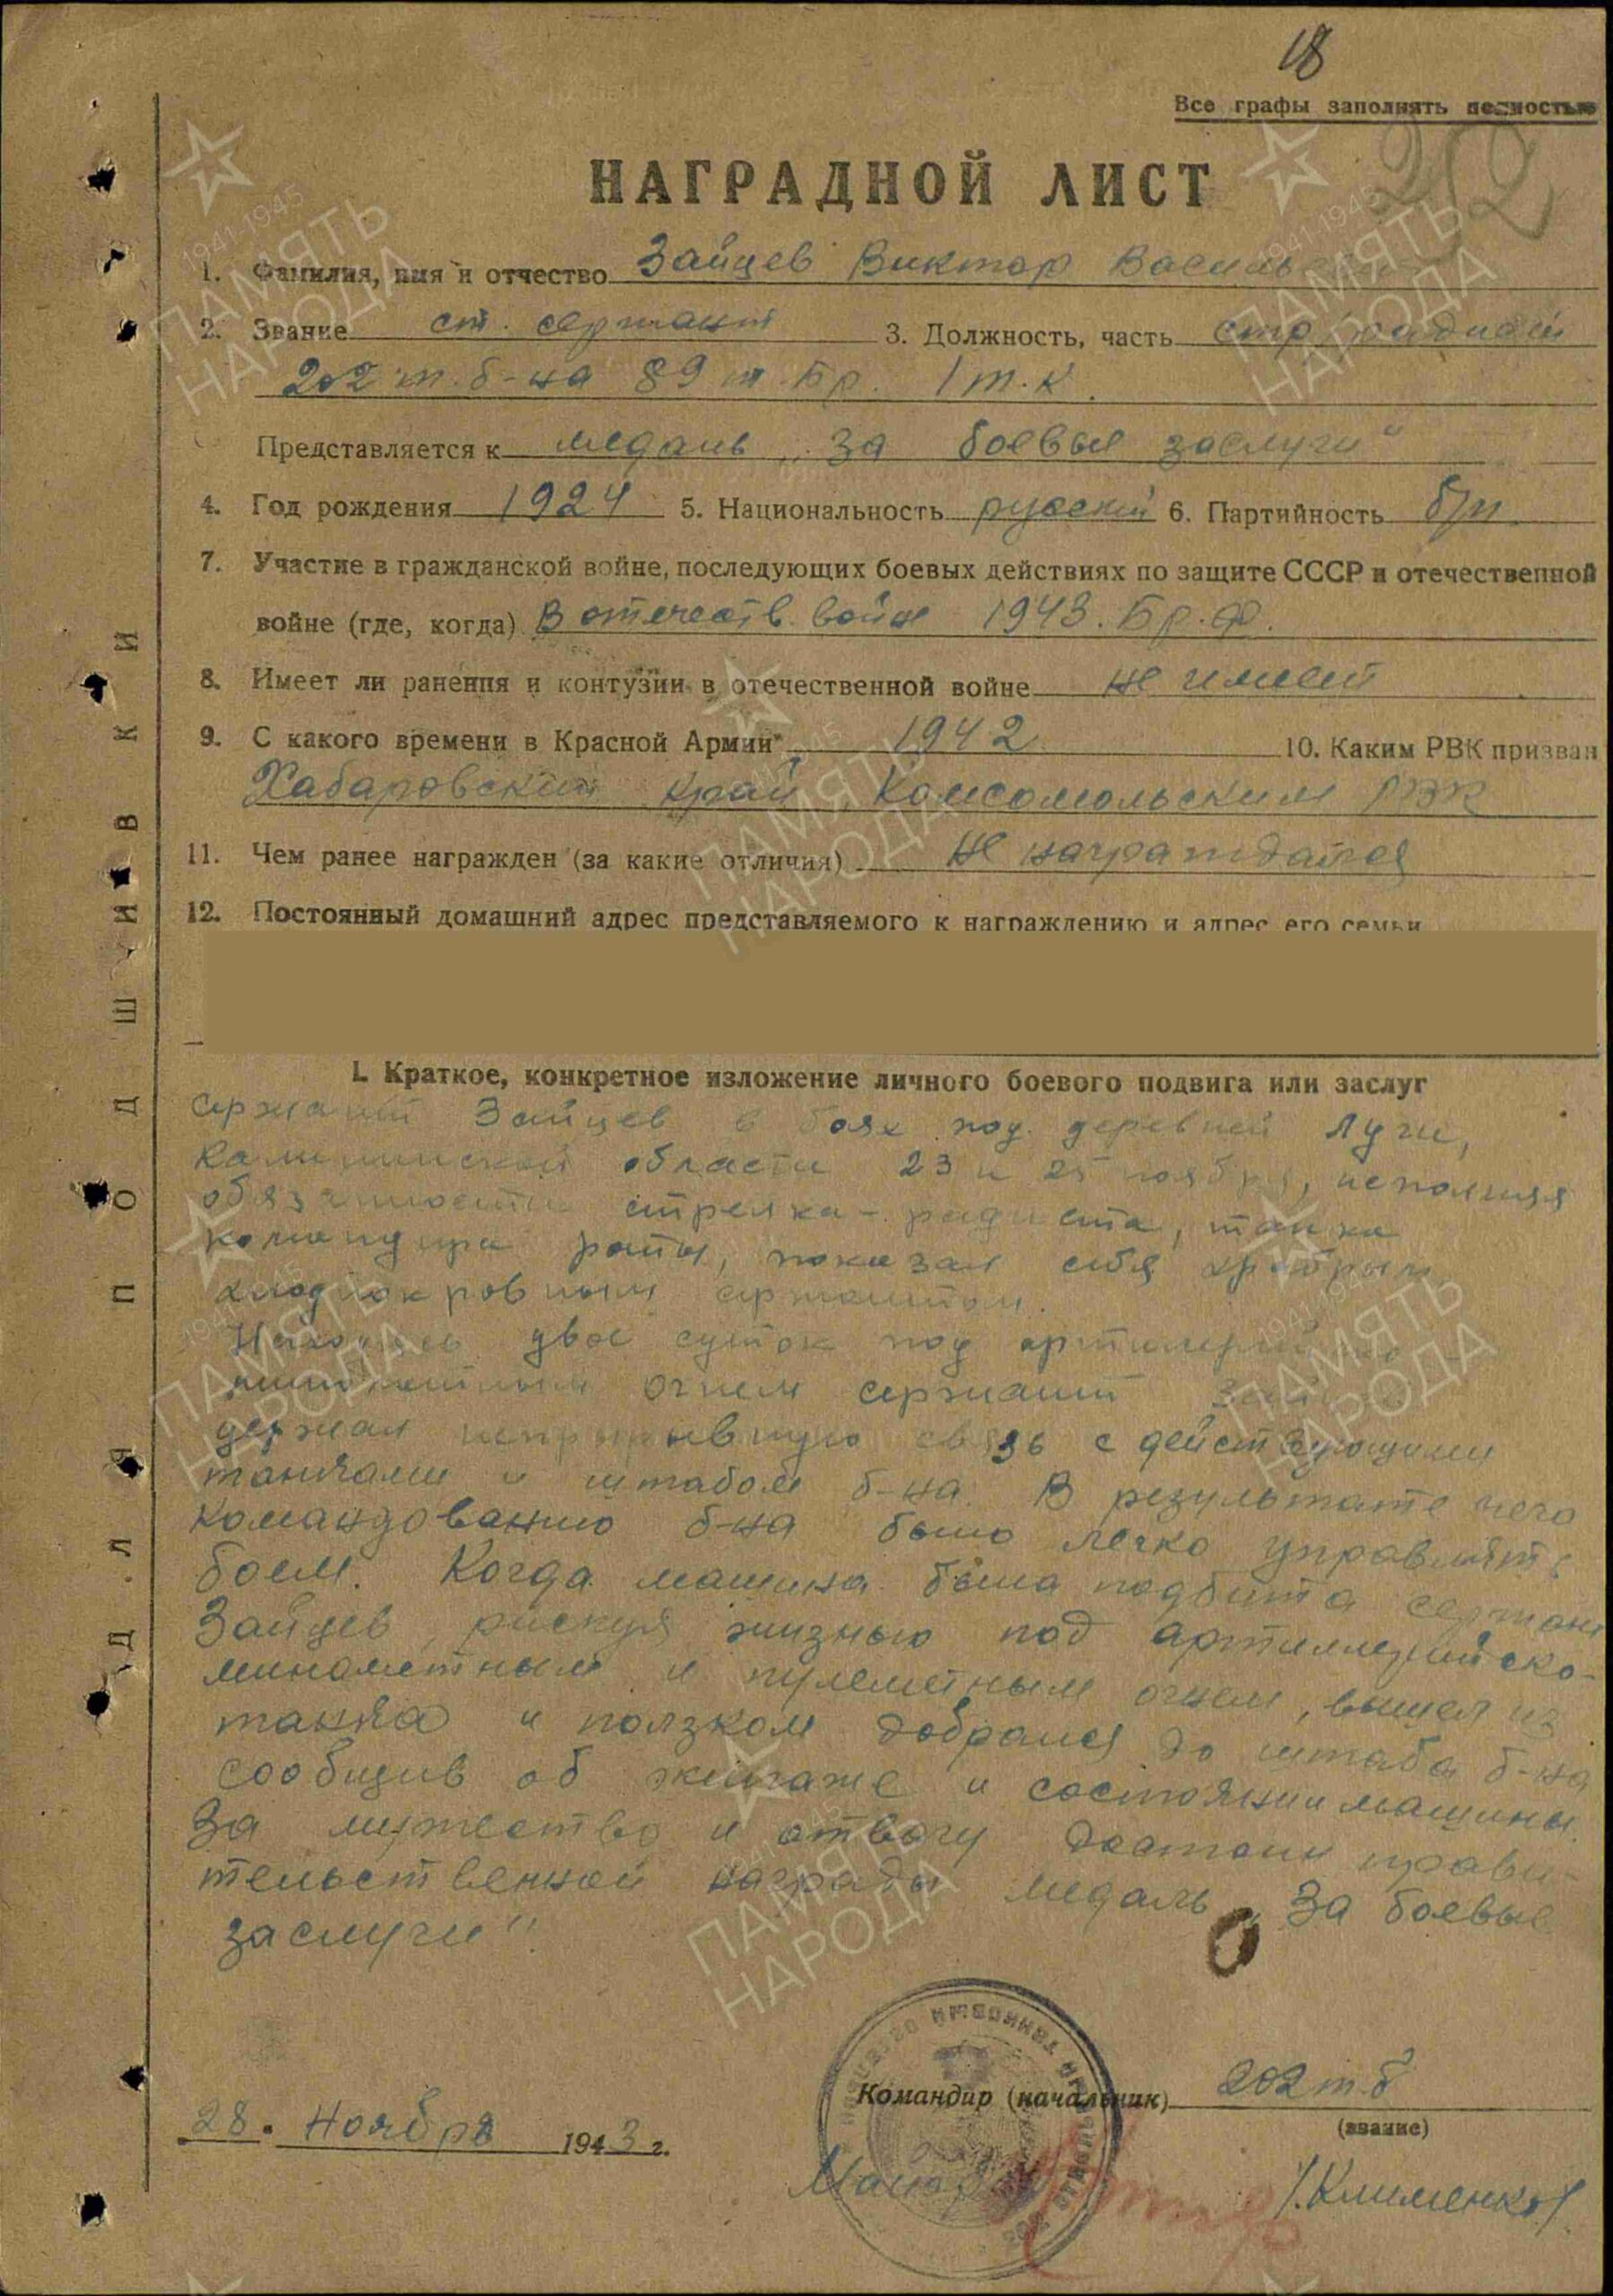 18
Все графы заполнять полностью
202
НАГРАДНОЙ ЛИСТ
1. Фамилия, имя и отчество Зайцев Виктор Васильевич
2. Звание ст. сержант 3. Должность, часть стр. радист
202 т.б-на 89 т.Бр. 1 т.к.
Представляется к медаль „За боевые заслуги“
4. Год рождения 1924 5. Национальность русский 6. Партийность б/п
7. Участие в гражданской войне, последующих боевых действиях по защите СССР и отечественной
войне (где, когда) В отечеств. войне 1943. Бр.Ф.
8. Имеет ли ранения и контузии в отечественной войне не имеет
9. С какого времени в Красной Армии 1942 10. Каким РВК призван
Хабаровский край Комсомольским РВК
11. Чем ранее награжден (за какие отличия) не награждался
12. Постоянный домашний адрес представляемого к награждению и адрес его семьи
I. Краткое, конкретное изложение личного боевого подвига или заслуг
сержант Зайцев в боях под деревней Лучи,
Калининской области 23 и 25 ноября, исполняя
обязанности стрелка-радиста, танка
командира роты, показал себя храбрым
хладнокровным сержантом.
Находясь двое суток под артиллерийско-
минометным огнем сержант Зайцев
держал непрерывную связь с действующими
танками и штабом б-на. В результате чего
командованию б-на было легко управлять
боем. Когда машина была подбита сержант
Зайцев, рискуя жизнью под артиллерийско-
минометным и пулеметным огнем, вышел из
танка и ползком добрался до штаба б-на
сообщив об экипаже и состоянии машины.
За мужество и отвагу достоин прави-
тельственной награды медаль „За боевые
заслуги“.
Командир (начальник) 202 т.б
(звание)
28. Ноября 1943 г.
/Клименко/
ДЛЯ ПОДШИВКИ
1941-1945
ПАМЯТЬ
НАРОДА